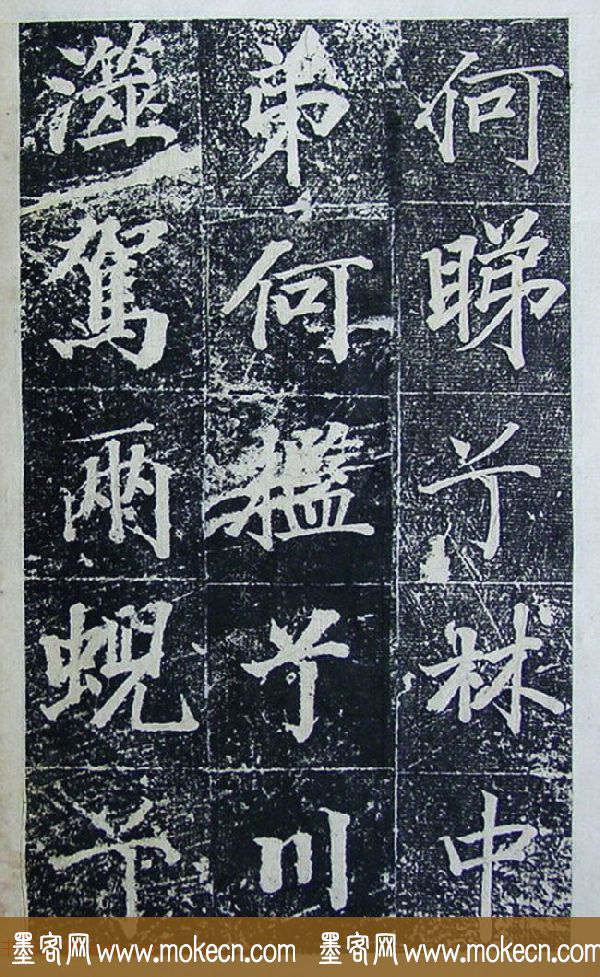 何睇兮林中
弟何檻兮川
澨駕兩蜺兮
墨客网 www.mokecn.com 墨客网 www.mokecn.com